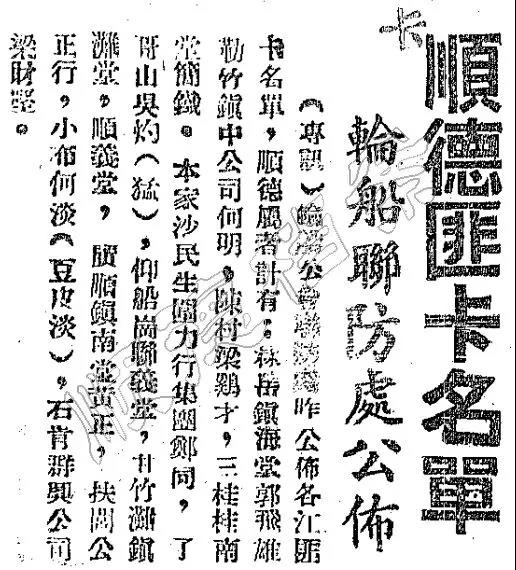 順德匪卡名單
輪船聯防處公佈
（專訊）輪船公會聯防處昨公佈各江匪
卡名單，順德屬者計有：林岳鎮海堂郭飛雄
勒竹鎮中公司何明，陳村梁鷄才，三桂桂南
堂簡鐵。本家沙民生團力行集團鄭同，了
哥山吳灼（猛），仰船崗聯義堂，甘竹灘鎮
灘堂，順義堂，廣順鎮南堂黃正，扶閭公
正行，小布何淡（豆皮淡），石肯群興公司
梁財堅。
卡
順德檔案